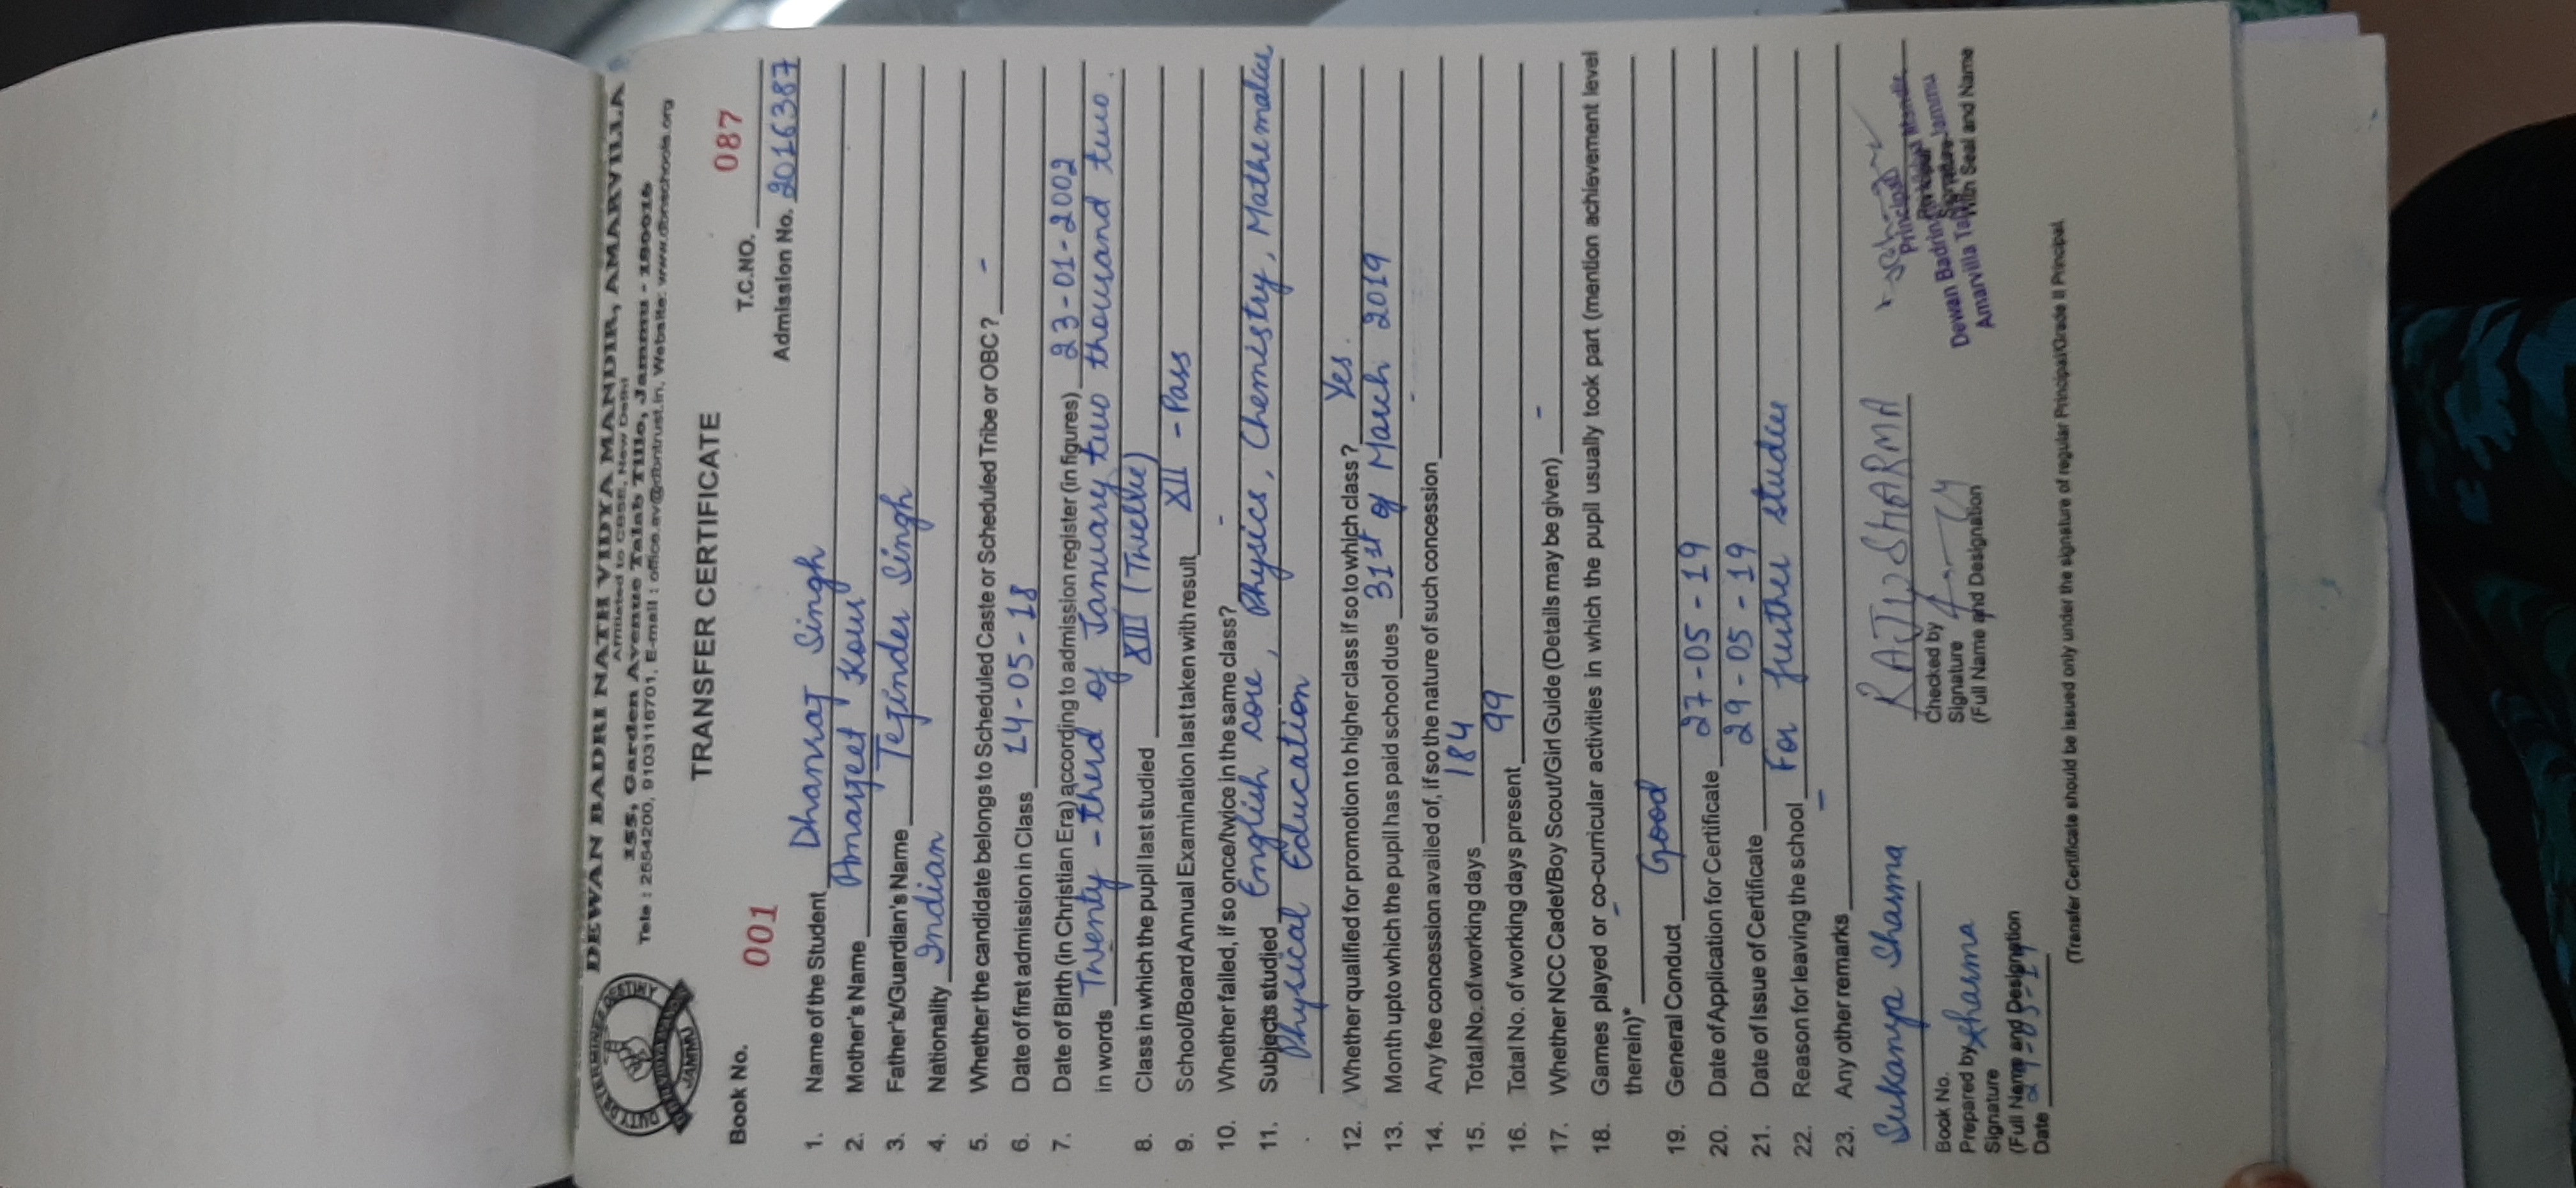 DEWAN BADRI NATH VIDYA MANDIR, AMARVILLA
Affiliated to CBSE, New Delhi
155, Garden Avenue Talab Tillo, Jammu - 180016
Tele : 2554200, 9103116701, E-mail : office.av@dbntrust.in, Website: www.dbnschools.org
JAMMU
TRANSFER CERTIFICATE
Book No. 001 T.C.NO. 087
Admission No. 2016387
1. Name of the Student Dhanraj Singh
2. Mother's Name Amarjeet Kour
3. Father's/Guardian's Name Tejinder Singh
4. Nationality Indian
5. Whether the candidate belongs to Scheduled Caste or Scheduled Tribe or OBC ? -
6. Date of first admission in Class 14-05-18
7. Date of Birth (in Christian Era) according to admission register (in figures) 23-01-2002
in words Twenty-therd of January two thousand two.
8. Class in which the pupil last studied XII (Twelve)
9. School/Board Annual Examination last taken with result XII - Pass
10. Whether failed, if so once/twice in the same class? -
11. Subjects studied English core, Physics, Chemistry, Mathematics
Physical Education
12. Whether qualified for promotion to higher class if so to which class ? Yes.
13. Month upto which the pupil has paid school dues 31st of March 2019
14. Any fee concession availed of, if so the nature of such concession -
15. Total No. of working days 184
16. Total No. of working days present 99
17. Whether NCC Cadet/Boy Scout/Girl Guide (Details may be given) -
18. Games played or co-curricular activities in which the pupil usually took part (mention achievement level
therein)* -
19. General Conduct Good
20. Date of Application for Certificate 27-05-19
21. Date of Issue of Certificate 29-05-19
22. Reason for leaving the school For further studies
23. Any other remarks -
Sukanya Sharma RAJU SHARMA
Book No.
Prepared by Sharma Checked by Principal
Signature Signature Signature
(Full Name and Designation (Full Name and Designation With Seal and Name
Date 29-05-19
Principal
Dewan Badrinath Vidya Mandir
Amarvilla Talab Jammu
(Transfer Certificate should be issued only under the signature of regular Principal/Grade II Principal.